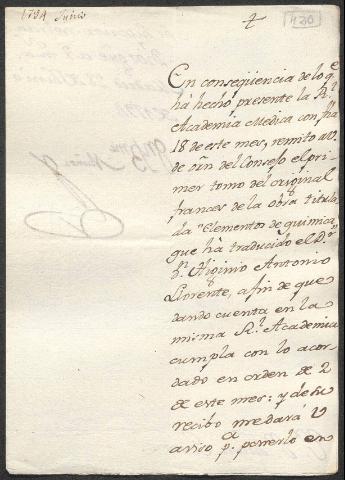 1794 Junio
430
En conseqüencia de lo q.e
há hecho presente la R.l
Academia Medica con fha
18 de este mes, remito a V.
de orn del Consejo el pri-
mer tomo del original
frances de la obra titula-
da "Elementos de quimica
que há traducido el D.or
D.n Higinio Antonio
Llorente, a fin de que
dando cuenta en la
misma R.l Academia
cumpla con lo acor-
dado en orden de 2
de este mes: y de su
recibo me dará V
aviso p.a ponerlo en